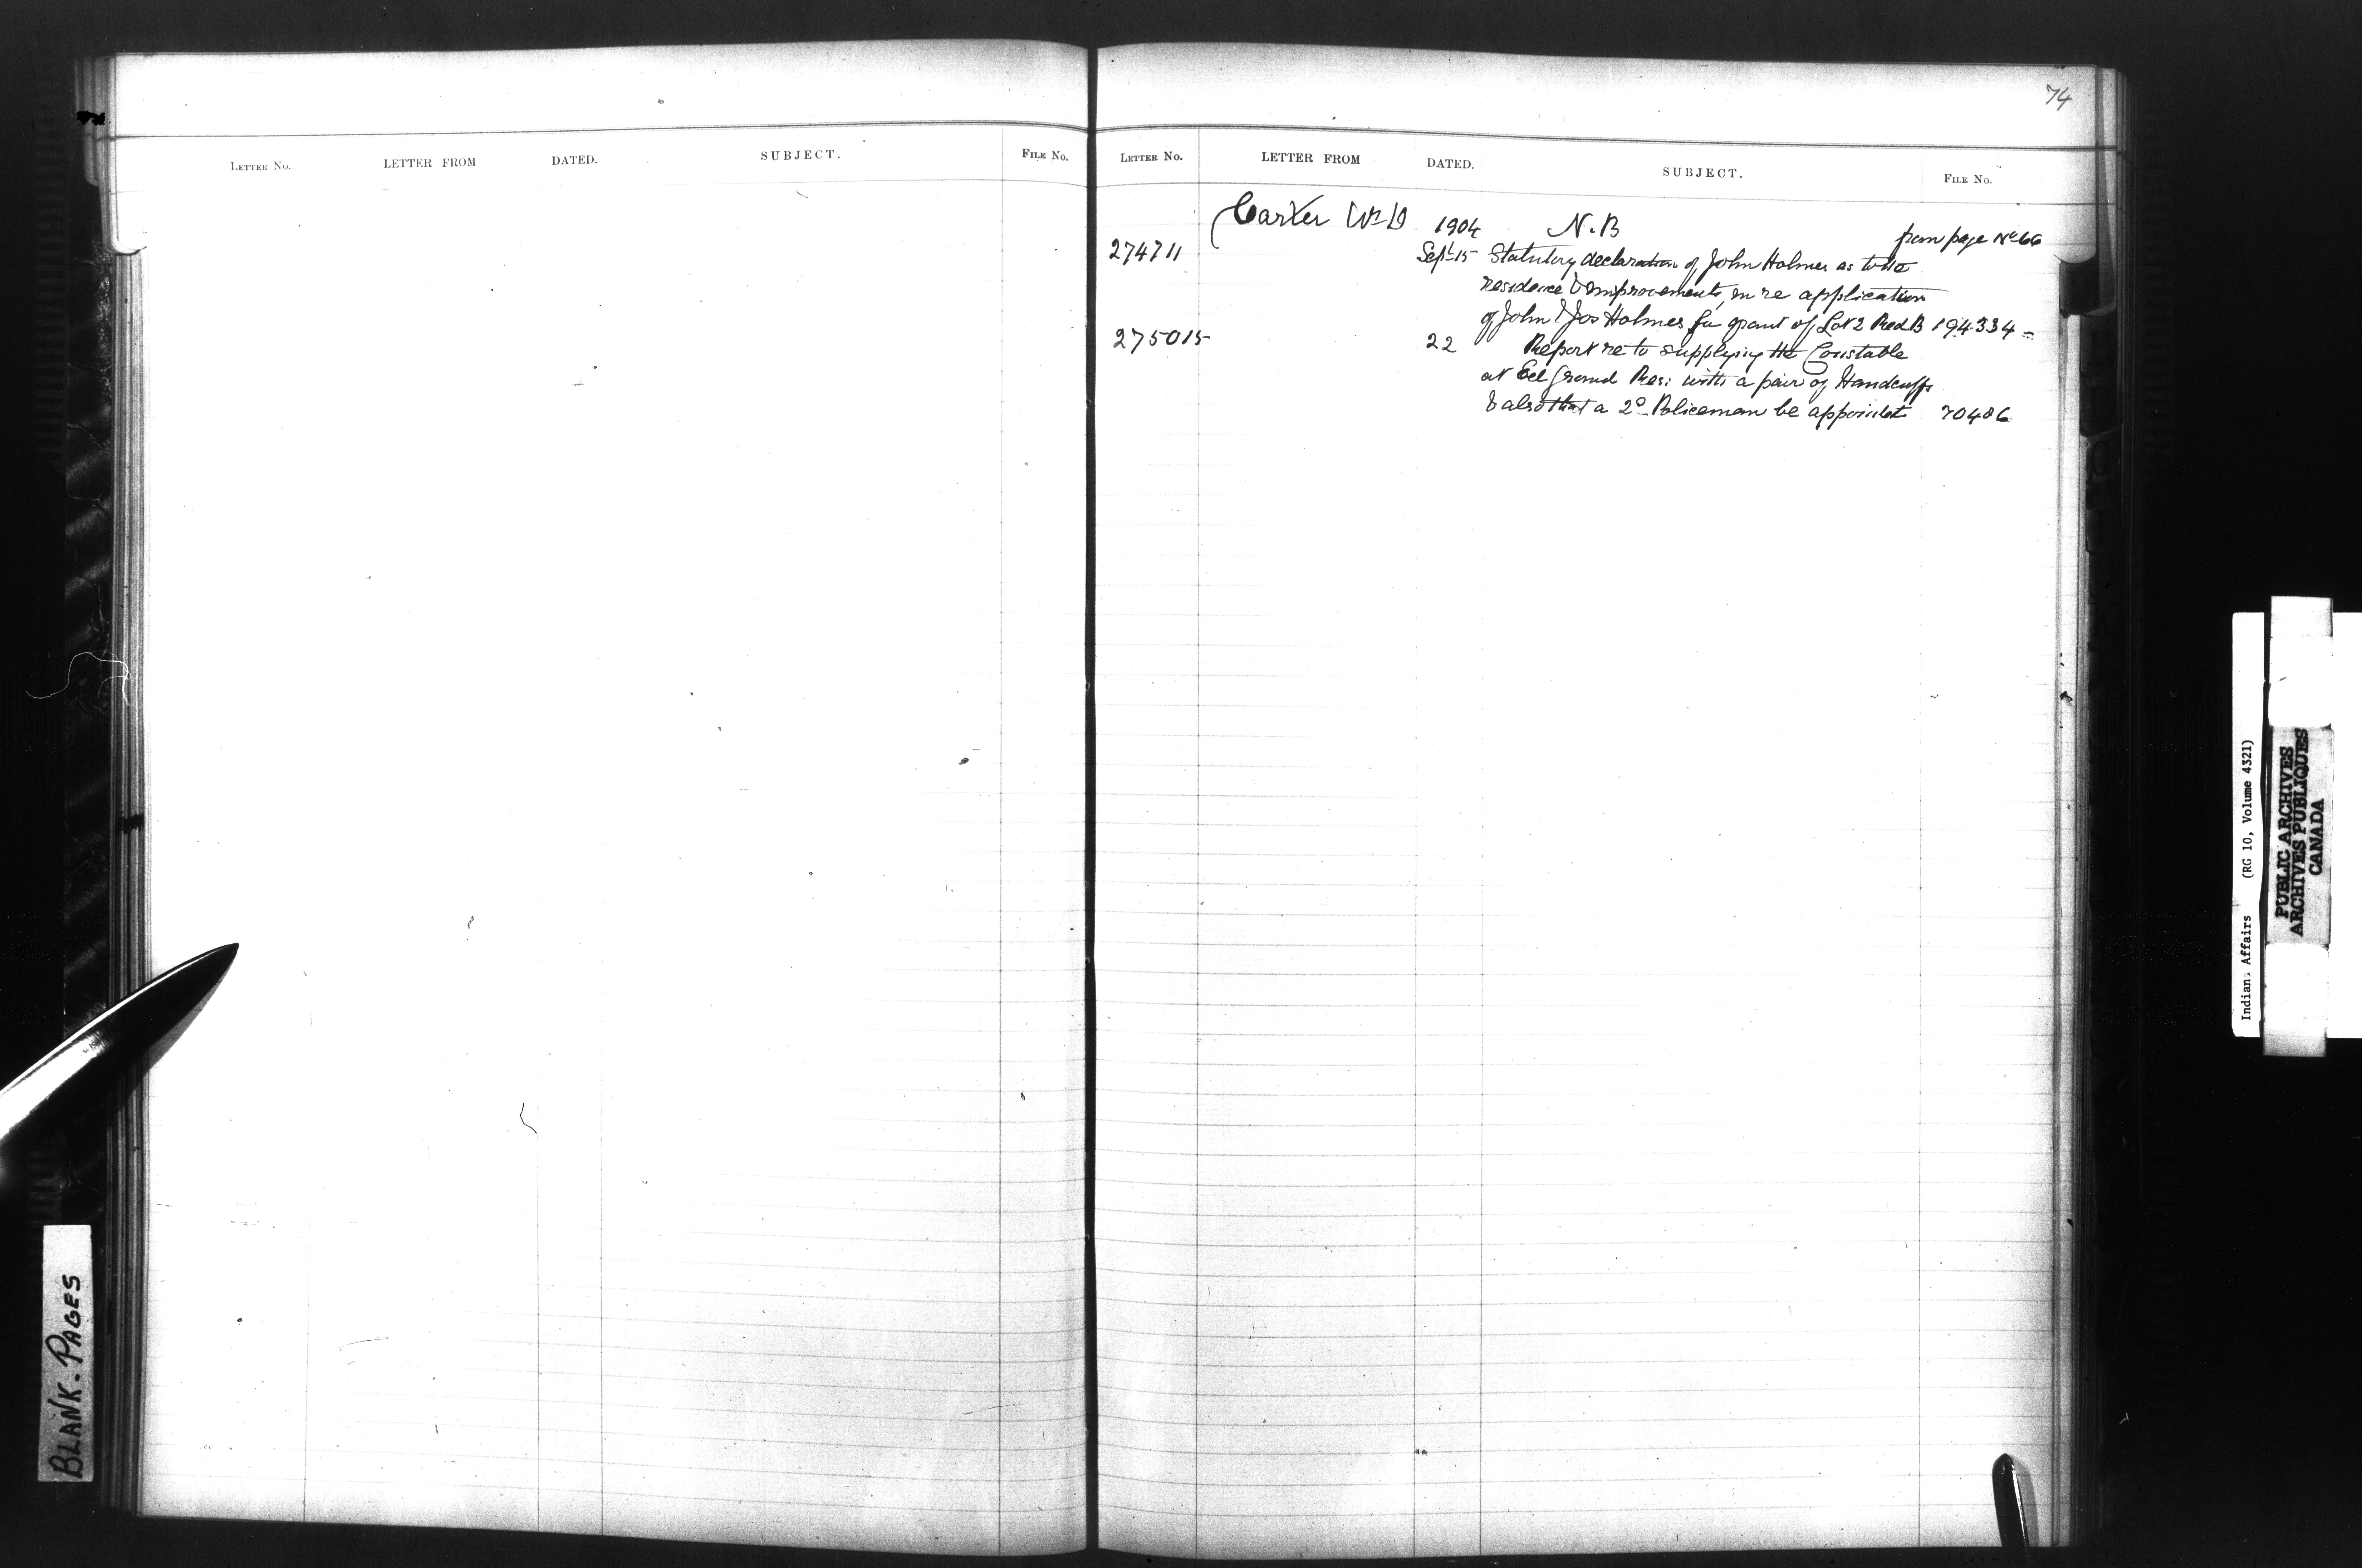 74
LETTER NO. LETTER FROM DATED. SUBJECT. FILE NO.
LETTER NO. LETTER FROM DATED. SUBJECT. FILE NO.
Carter Wm D 1904 N.B from page No 66
274711 Sept 15 Statutory declaration of John Holmes as to the
residence & improvements, in re application
of John & Jos Holmes for grant of Lot 2 Red B 194.334 =
275015 22 Report re to supplying the Constable
at Eel Ground Res: with a pair of Handcuffs
& also that a 2° Policeman be appointed 70406
BLANK-PAGES
Indian Affairs (RG 10, Volume 4321)
PUBLIC ARCHIVES
ARCHIVES PUBLIQUES
CANADA